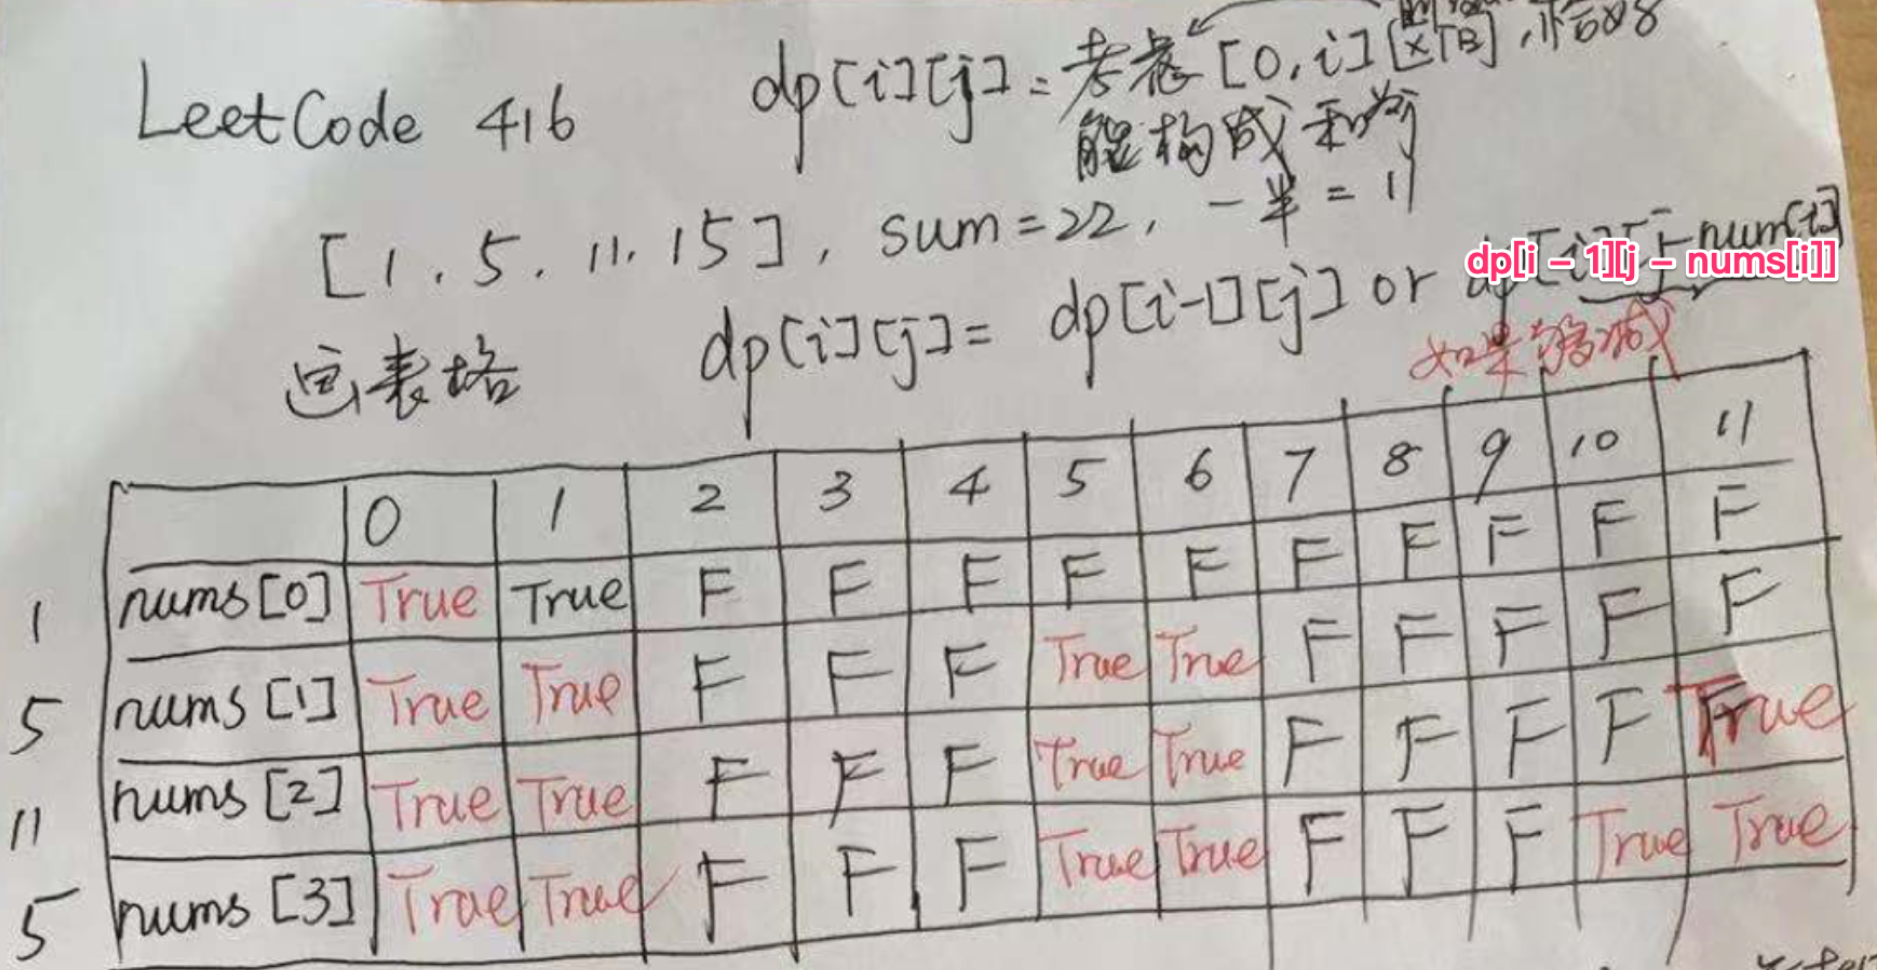 LeetCode 416
dp[i][j] = 考虑 [0,i] 区间
能构成和为j
[1, 5, 11, 15], sum=22, 一半 = 11
dp[i][j] = dp[i-1][j] or
dp[i – 1][j – nums[i]]
如果够减
画表格
0 1 2 3 4 5 6 7 8 9 10 11
1 nums[0] True True F F F F F F F F F F
5 nums[1] True True F F F True True F F F F F
11 nums[2] True True F F F True True F F F F True
5 nums[3] True True F F F True True F F F True True